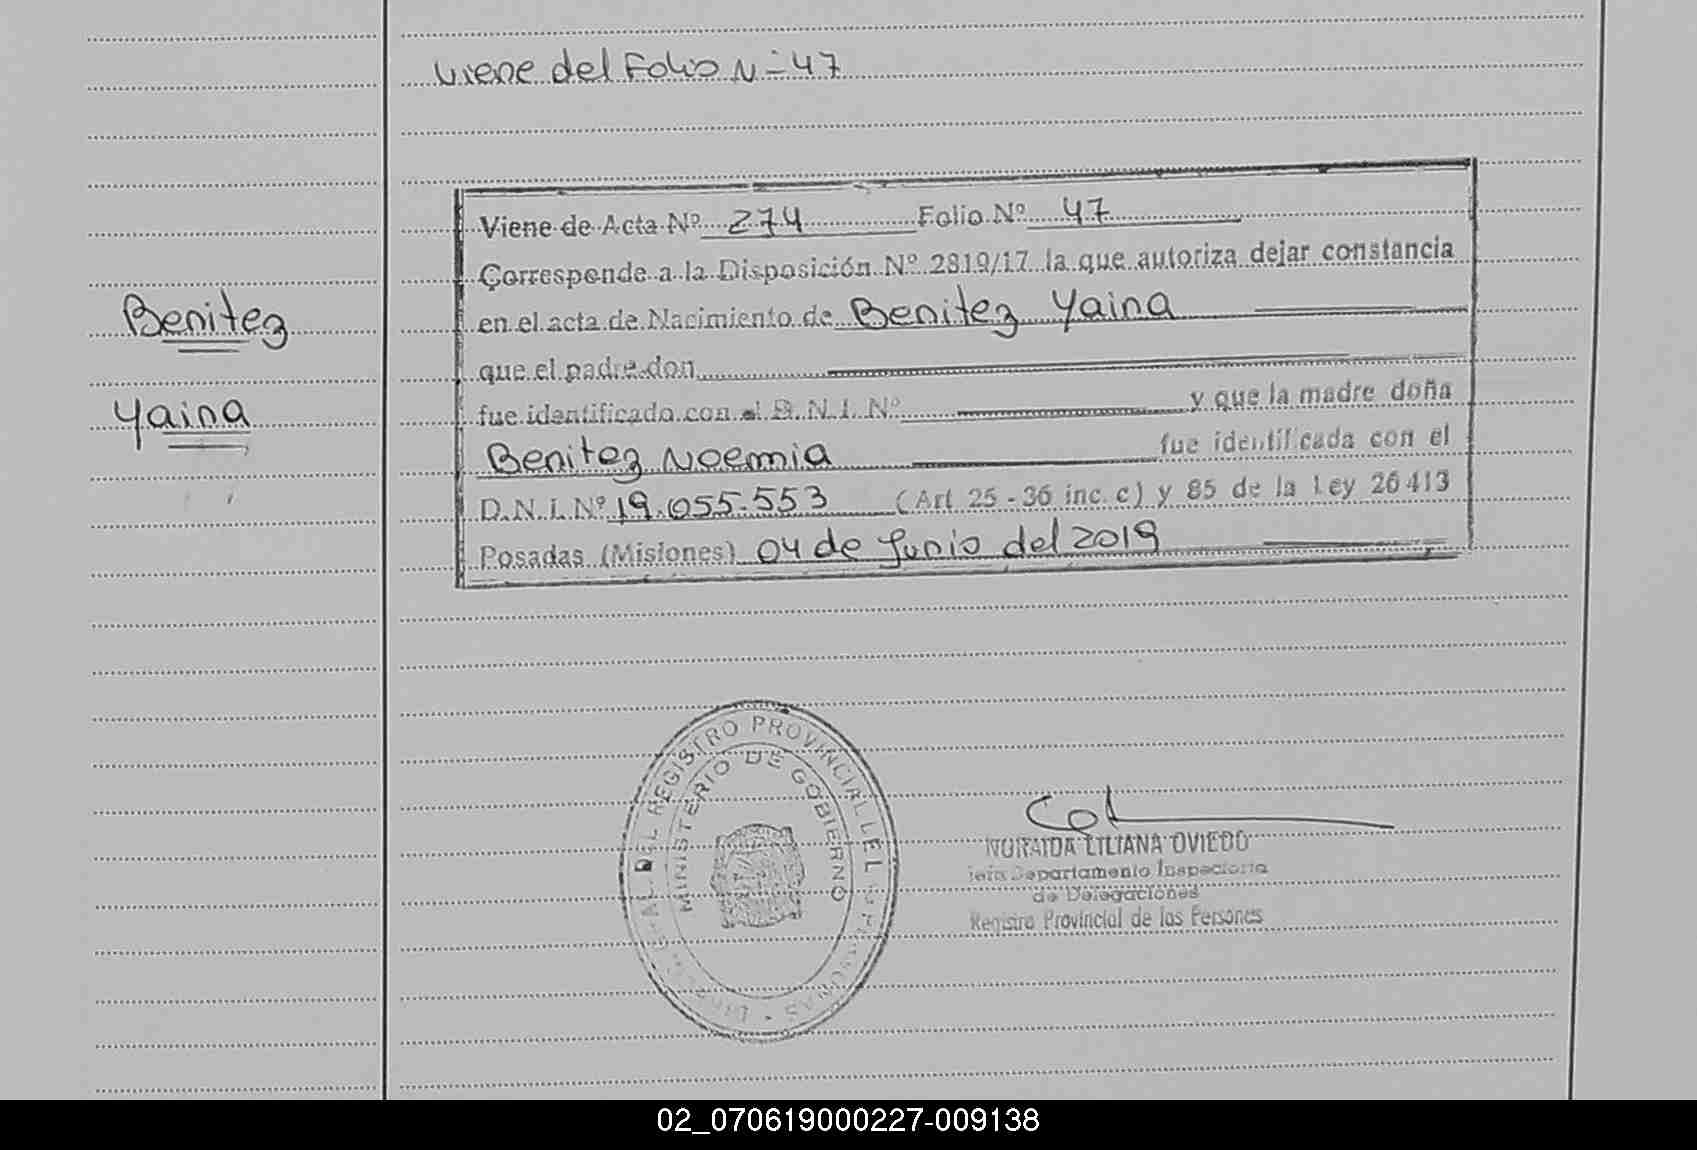 Viene del Folio N- 47
Viene de Acta Nº 274 Folio Nº 47
Corresponde a la Disposición Nº 2819/17 la que autoriza dejar constancia
en el acta de Nacimiento de Benitez Yaina
que el padre don
fue identificado con el D.N.I. Nº y que la madre doña
Benitez Noemia fue identificada con el
D.N.I. Nº 19.055.553 (Art 25 - 36 inc. c) y 85 de la Ley 26413
Posadas (Misiones) 04 de Junio del 2019
Benitez
Yaina
DEL REGISTRO PROVINCIAL DE
MINISTERIO DE GOBIERNO
NORAIDA LILIANA OVIEDO
Departamento Inspectoria
de Delegaciones
Registro Provincial de las Personas
02_070619000227-009138